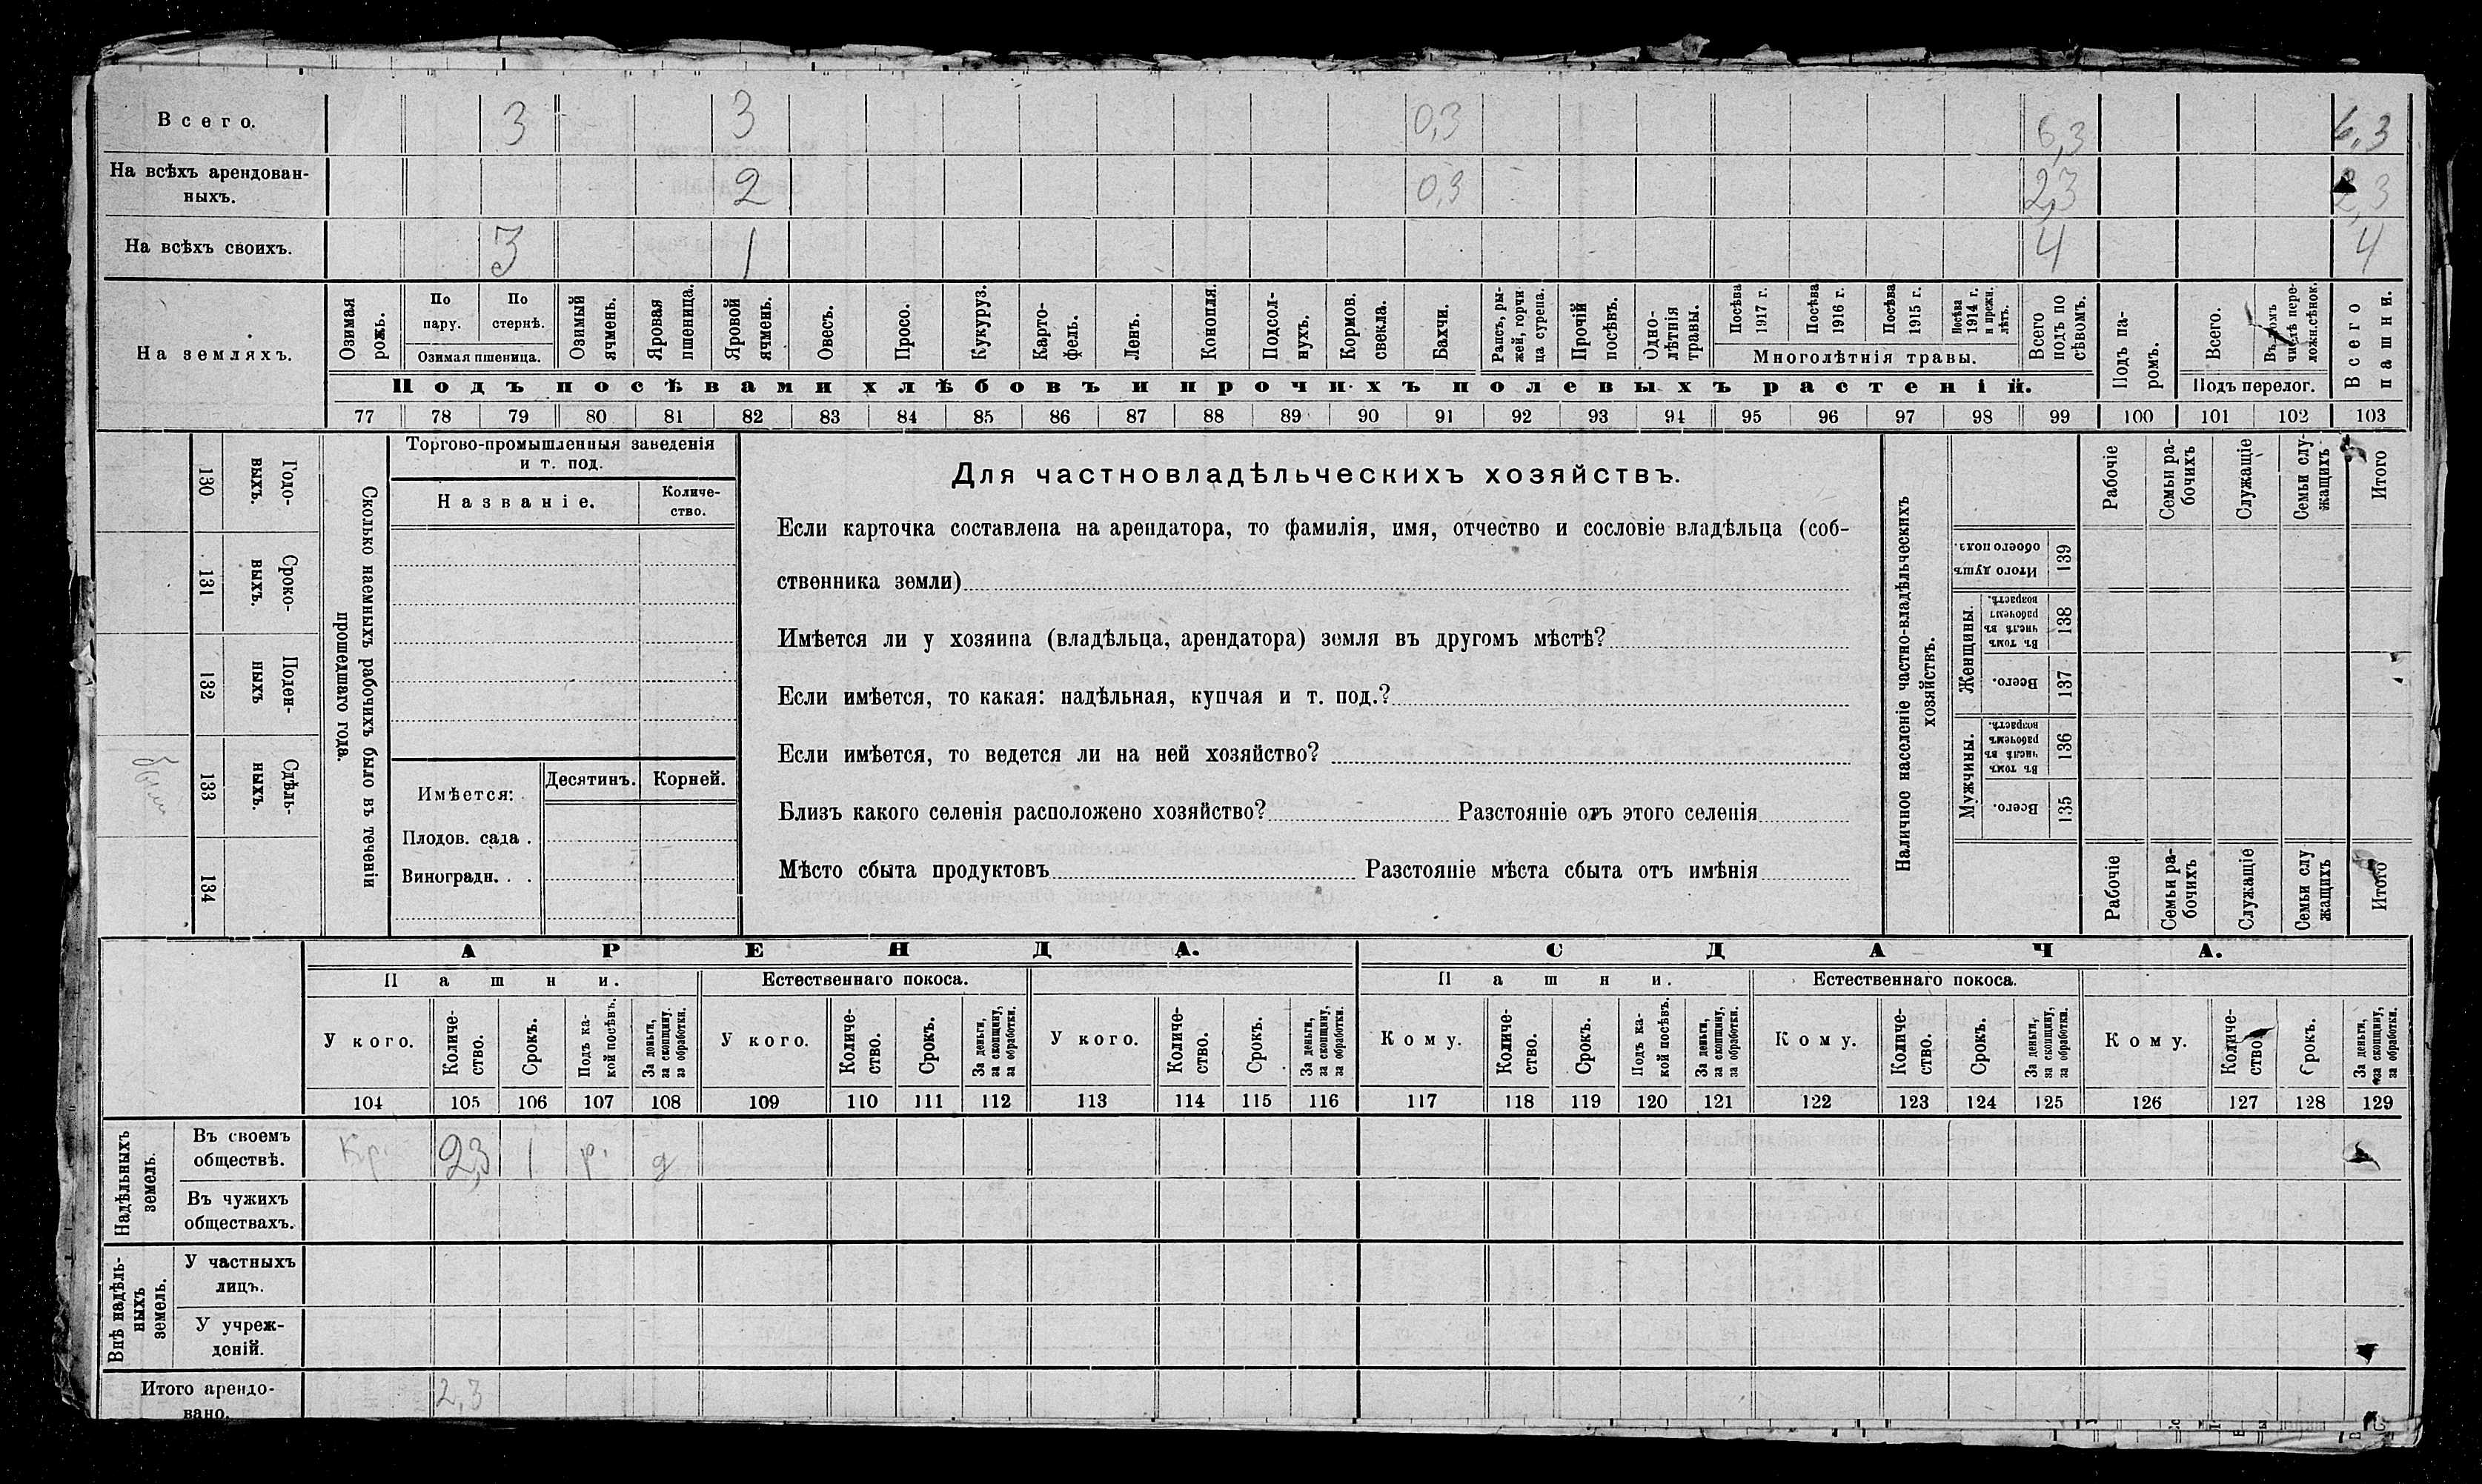 Всего. 3 3 0,3 6,3 6,3
На всѣхъ арендован-
ныхъ. 2 0,3 2,3 2,3
На всѣхъ своихъ. 3 1 4 4
На земляхъ.
Озимая рожь.
По пару.
По стернѣ.
Озимая пшеница.
Озимый ячмень.
Яровая пшеница.
Яровой ячмень.
Овесъ.
Просо.
Кукуруз.
Карто-
фель.
Ленъ.
Конопля.
Подсол-
нухъ.
Кормов.
свекла.
Бахчи.
Рапсъ, ры-
жей, горчи-
ца сурепа.
Прочій посѣвъ.
Одно-
лѣтнія травы.
Посѣва 1917 г.
Посѣва 1916 г.
Посѣва 1915 г.
Посѣва 1914 г. и прежн. лѣтъ.
Многолѣтнія травы.
Всего подъ по
сѣвомъ.
Подъ па-
ромъ.
Всего.
Въ томъ числѣ пере-
ложн.сѣнок.
Подъ перелог.
Всего пашни.
Подъ посѣвами хлѣбовъ и прочихъ полевыхъ растеній.
77 78 79 80 81 82 83 84 85 86 87 88 89 90 91 92 93 94 95 96 97 98 99 100 101 102 103
130 Годо-
выхъ.
131 Сроко-
выхъ.
132 Поден-
ныхъ
133 Сдѣль-
ныхъ.
134
Сколько наемныхъ рабочихъ было въ теченіи
прошедшаго года.
Торгово-промышленныя заведенія
и т. под.
Названіе.
Количе-
ство.
Имѣется:
Десятинъ. Корней.
Плодов. сада .
Виноградн. . .
Для частновладѣльческихъ хозяйствъ.
Если карточка составлена на арендатора, то фамилія, имя, отчество и сословіе владѣльца (соб-
ственника земли)
Имѣется ли у хозяина (владѣльца, арендатора) земля въ другомъ мѣстѣ?
Если имѣется, то какая: надѣльная, купчая и т. под.?
Если имѣется, то ведется ли на ней хозяйство?
Близъ какого селенія расположено хозяйство? Разстояніе отъ этого селенія
Мѣсто сбыта продуктовъ Разстояніе мѣста сбыта отъ имѣнія
Наличное населеніе частно-владѣльческихъ
хозяйствъ.
Рабочіе
Семьи ра-
бочихъ
Служащіе
Семьи слу-
жащихъ
Итого
Итого душъ обоего пол. 139
Женщины.
Въ томъ числѣ въ рабочемъ возрастѣ. 138
Всего. 137
Мужчины.
Въ томъ числѣ въ рабочемъ возрастѣ. 136
Всего. 135
Рабочіе
Семьи ра-
бочихъ
Служащіе
Семьи слу
жащихъ
Итого
АРЕНДА. СДАЧА.
Пашни. Естественнаго покоса. Пашни. Естественнаго покоса.
У кого.
Количе-
ство.
Срокъ.
Подъ ка-
кой посѣвъ.
За деньги,
за скопщину,
за обработки.
У кого.
Количе-
ство.
Срокъ.
За деньги,
за скопщину,
за обработки.
У кого.
Количе-
ство.
Срокъ.
За деньги,
за скопщину,
за обработки.
Кому.
Количе-
ство.
Срокъ.
Подъ ка-
кой посѣвъ.
За деньги,
за скопщину,
за обработки.
Кому.
Количе-
ство.
Срокъ.
За деньги,
за скопщину,
за обработки.
Кому.
Количе-
ство.
Срокъ.
За деньги,
за скопщину,
за обработки.
104 105 106 107 108 109 110 111 112 113 114 115 116 117 118 119 120 121 122 123 124 125 126 127 128 129
Надѣльныхъ
земель.
Въ своемъ
обществѣ. Кр. 2,3 1 р. д
Въ чужихъ
обществахъ.
Внѣ надѣль-
ныхъ
земель.
У частныхъ
лицъ.
У учреж-
деній.
Итого арендо-
вано. 2,3